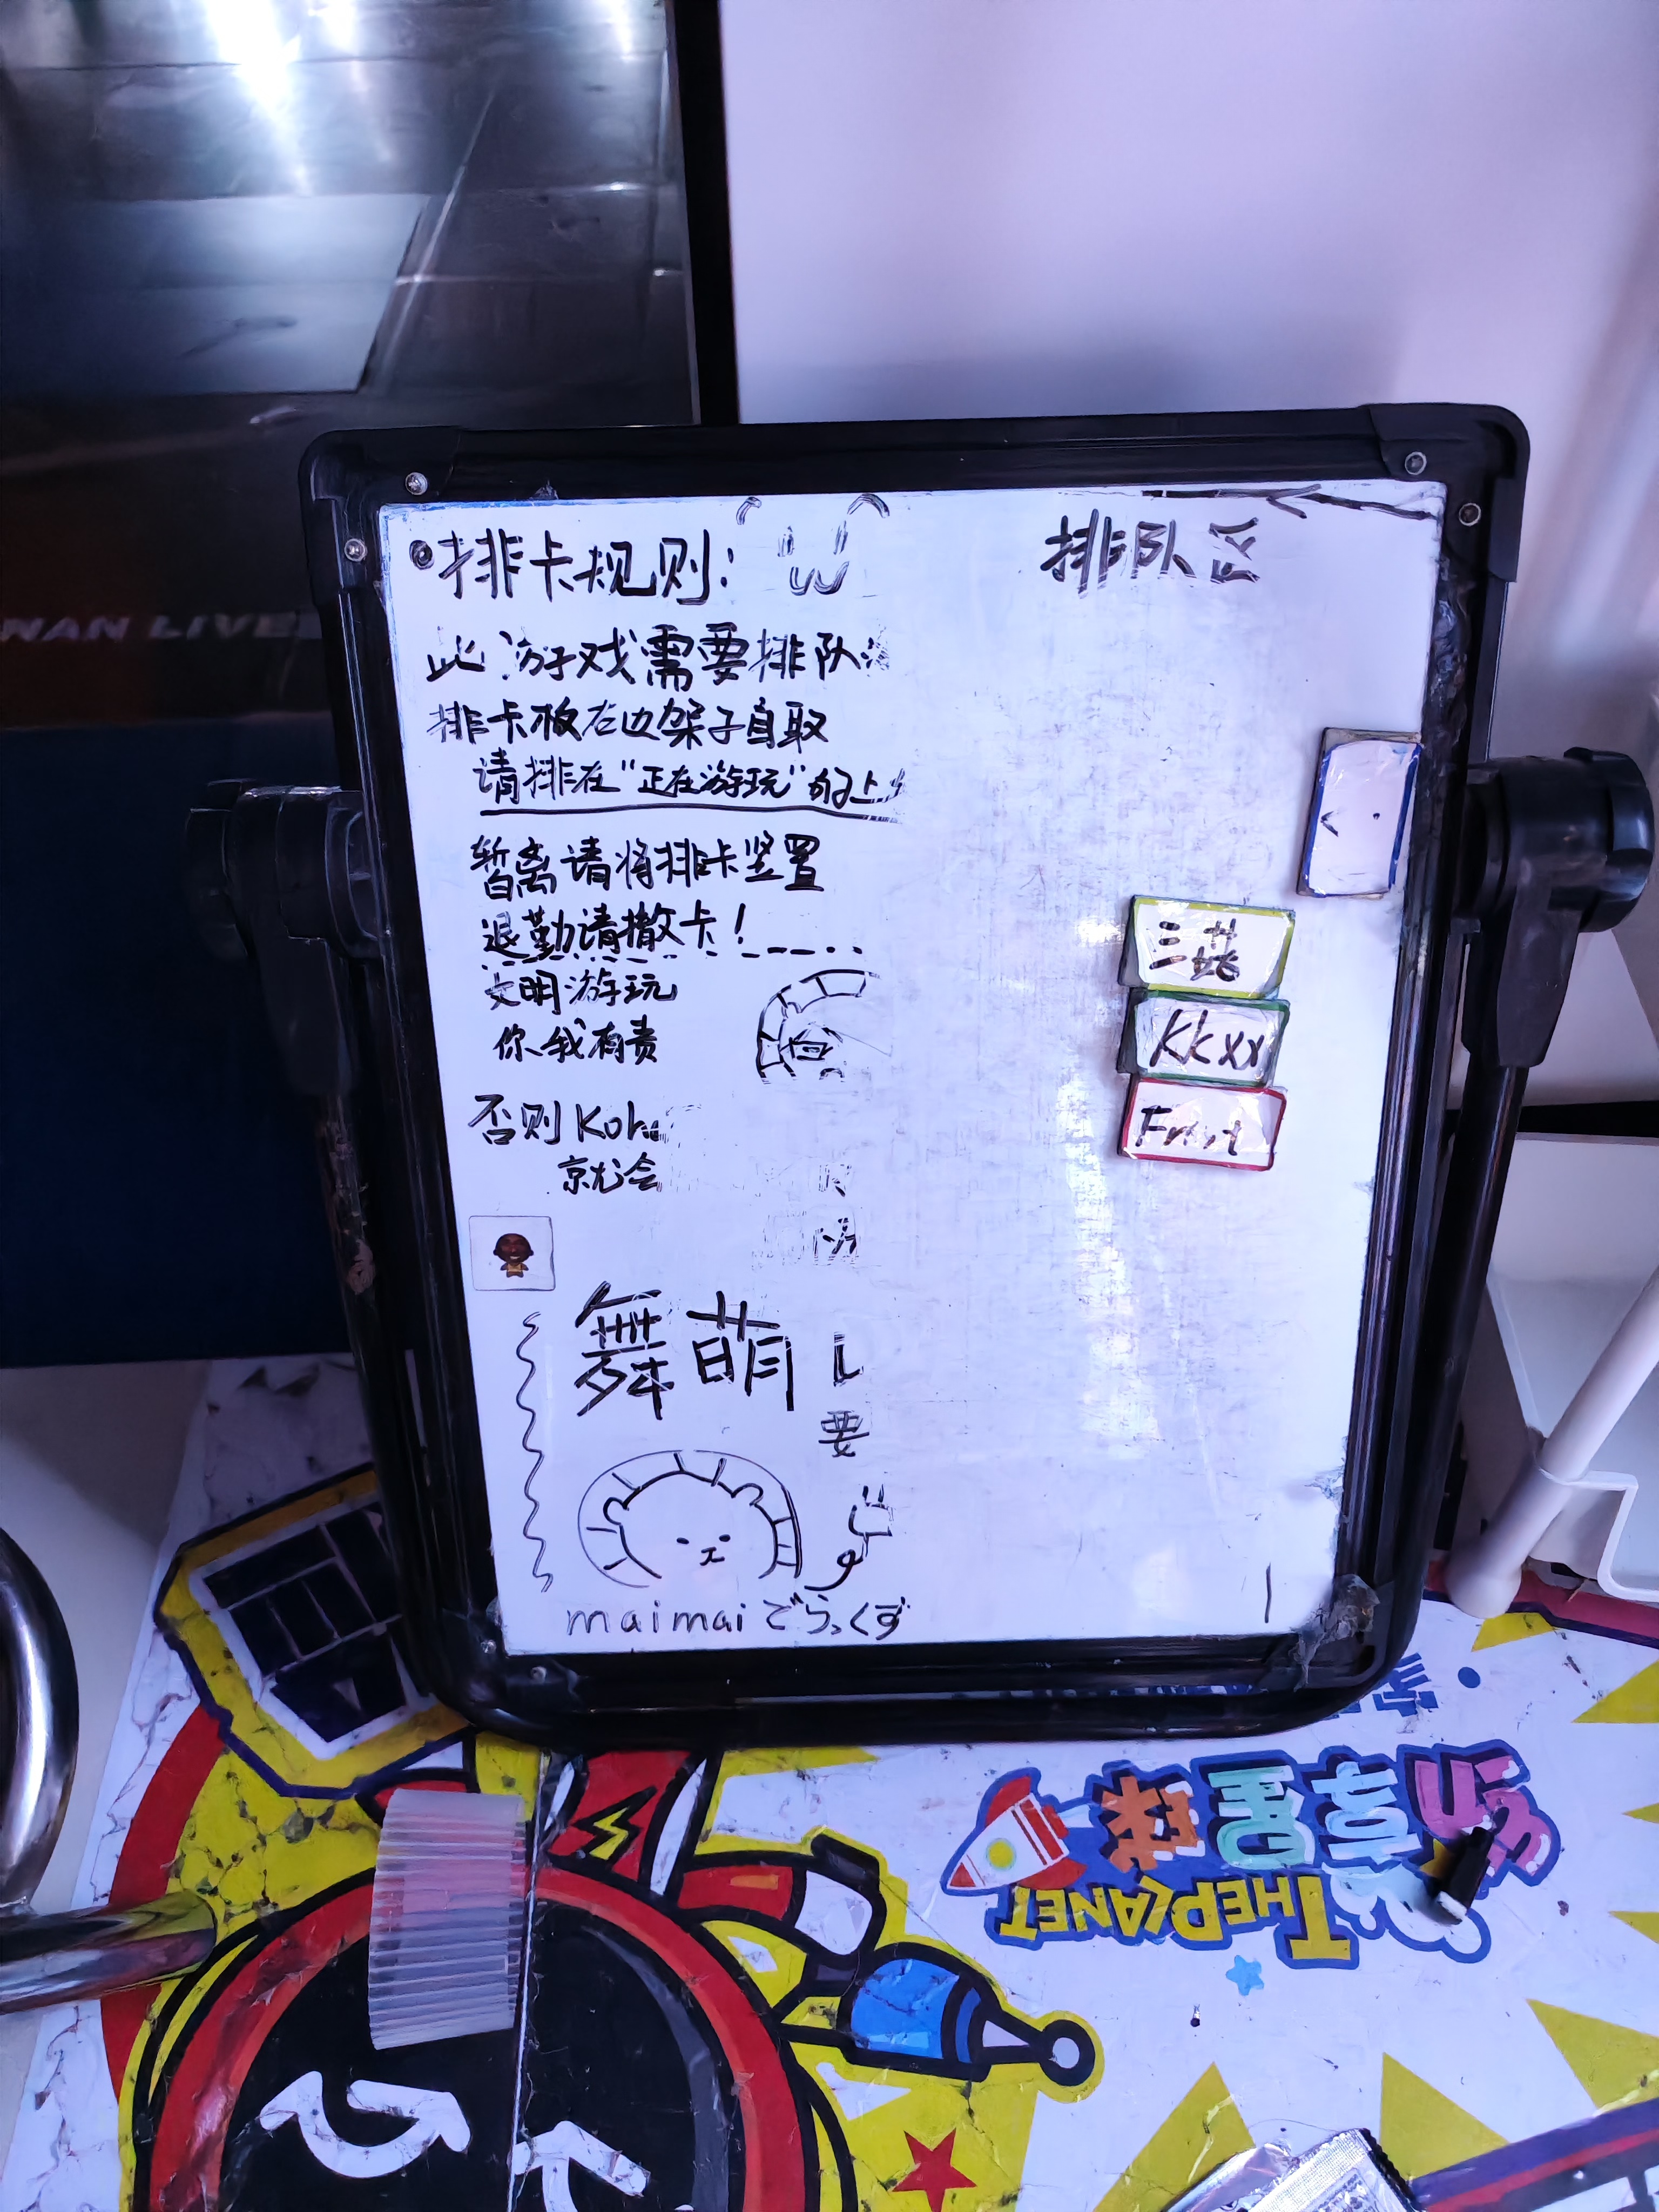 排卡规则:
此游戏需要排队
排卡板右边架子自取
请排在"正在游玩"的上
暂离请将排卡竖置
退勤请撤卡!
文明游玩
你我有责
否则
就会
舞萌
要
maimaiでらっくす
排队区
三菇
Kkxx
WAN LIVE
乐享星球
THEPLANET